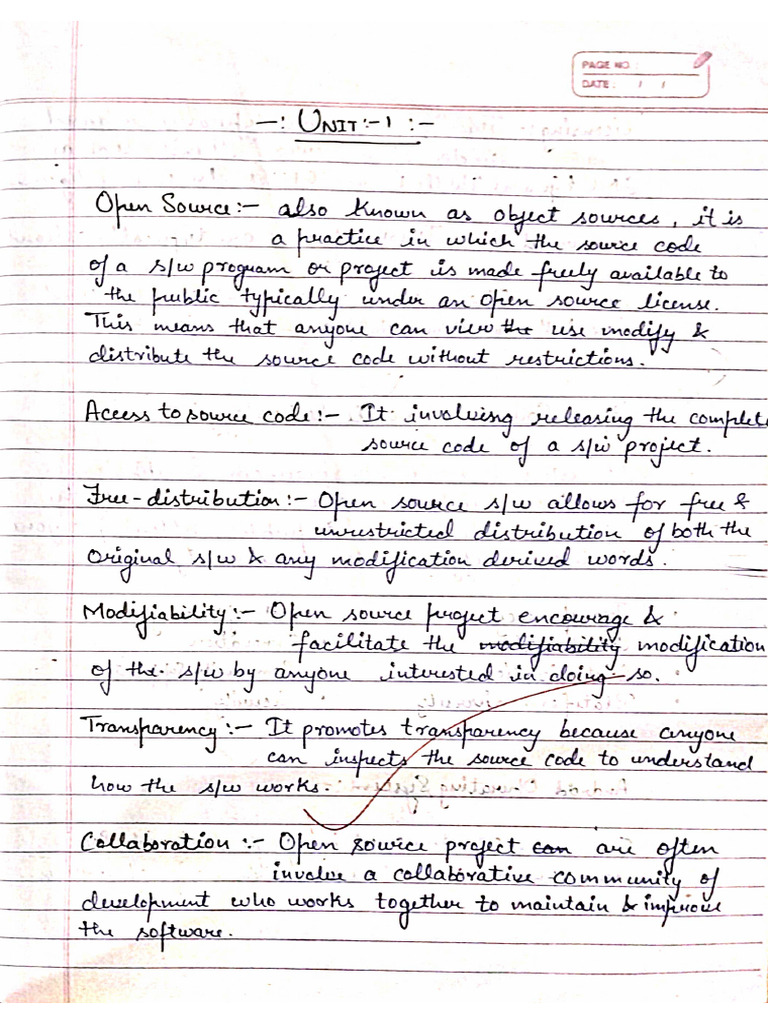 PAGE NO :
DATE : / /
-: UNIT:-1 :-
Open Source:- also known as object sources, it is
a practice in which the source code
of a s/w program or project is made freely available to
the public typically under an open source license.
This means that anyone can view the use modify &
distribute the source code without restrictions.
Access to source code:- It involving releasing the complete
source code of a s/w project.
Free-distribution:- Open source s/w allows for free &
unrestricted distribution of both the
Original s/w & any modification derived words.
Modifiability:- Open source project encourage &
facilitate the modifiability modification
of the s/w by anyone interested in doing so.
Transparency:- It promotes transparency because anyone
can inspects the source code to understand
how the s/w works.
Collaboration:- Open source project can are often
involve a collaborative community of
development who works together to maintain & improve
the software.